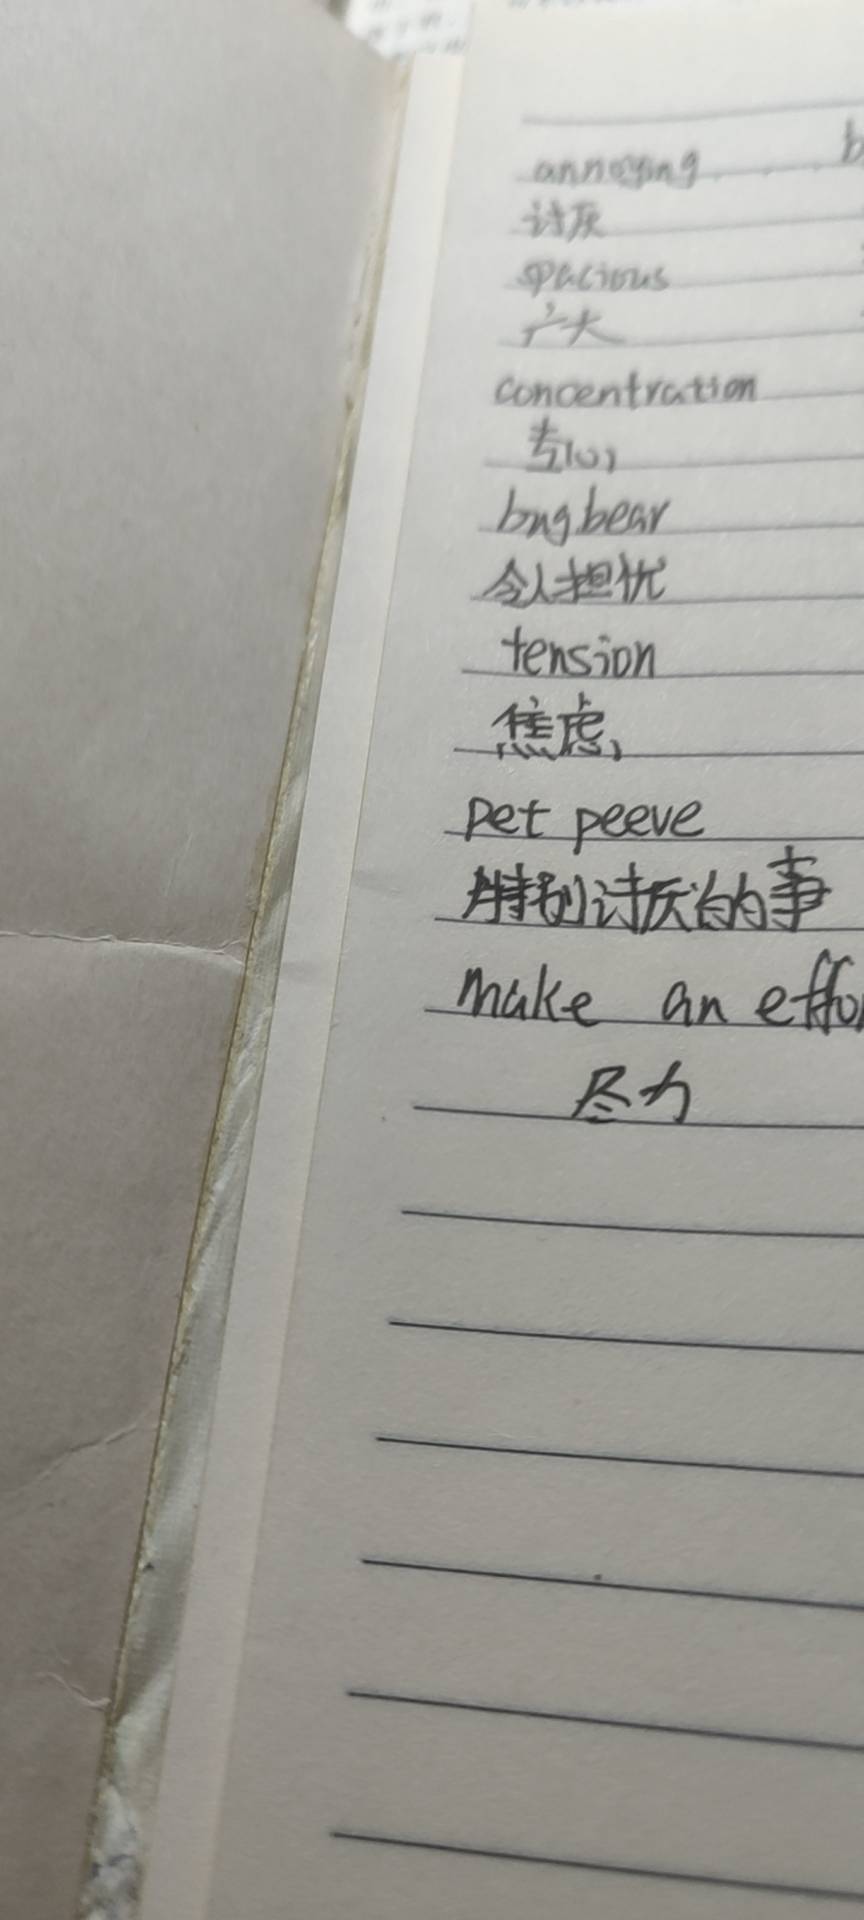 annoying
讨厌
spacious
广大
concentration
专心
bugbear
令人担忧
tension
焦虑
pet peeve
特别讨厌的事
make an effor
尽力